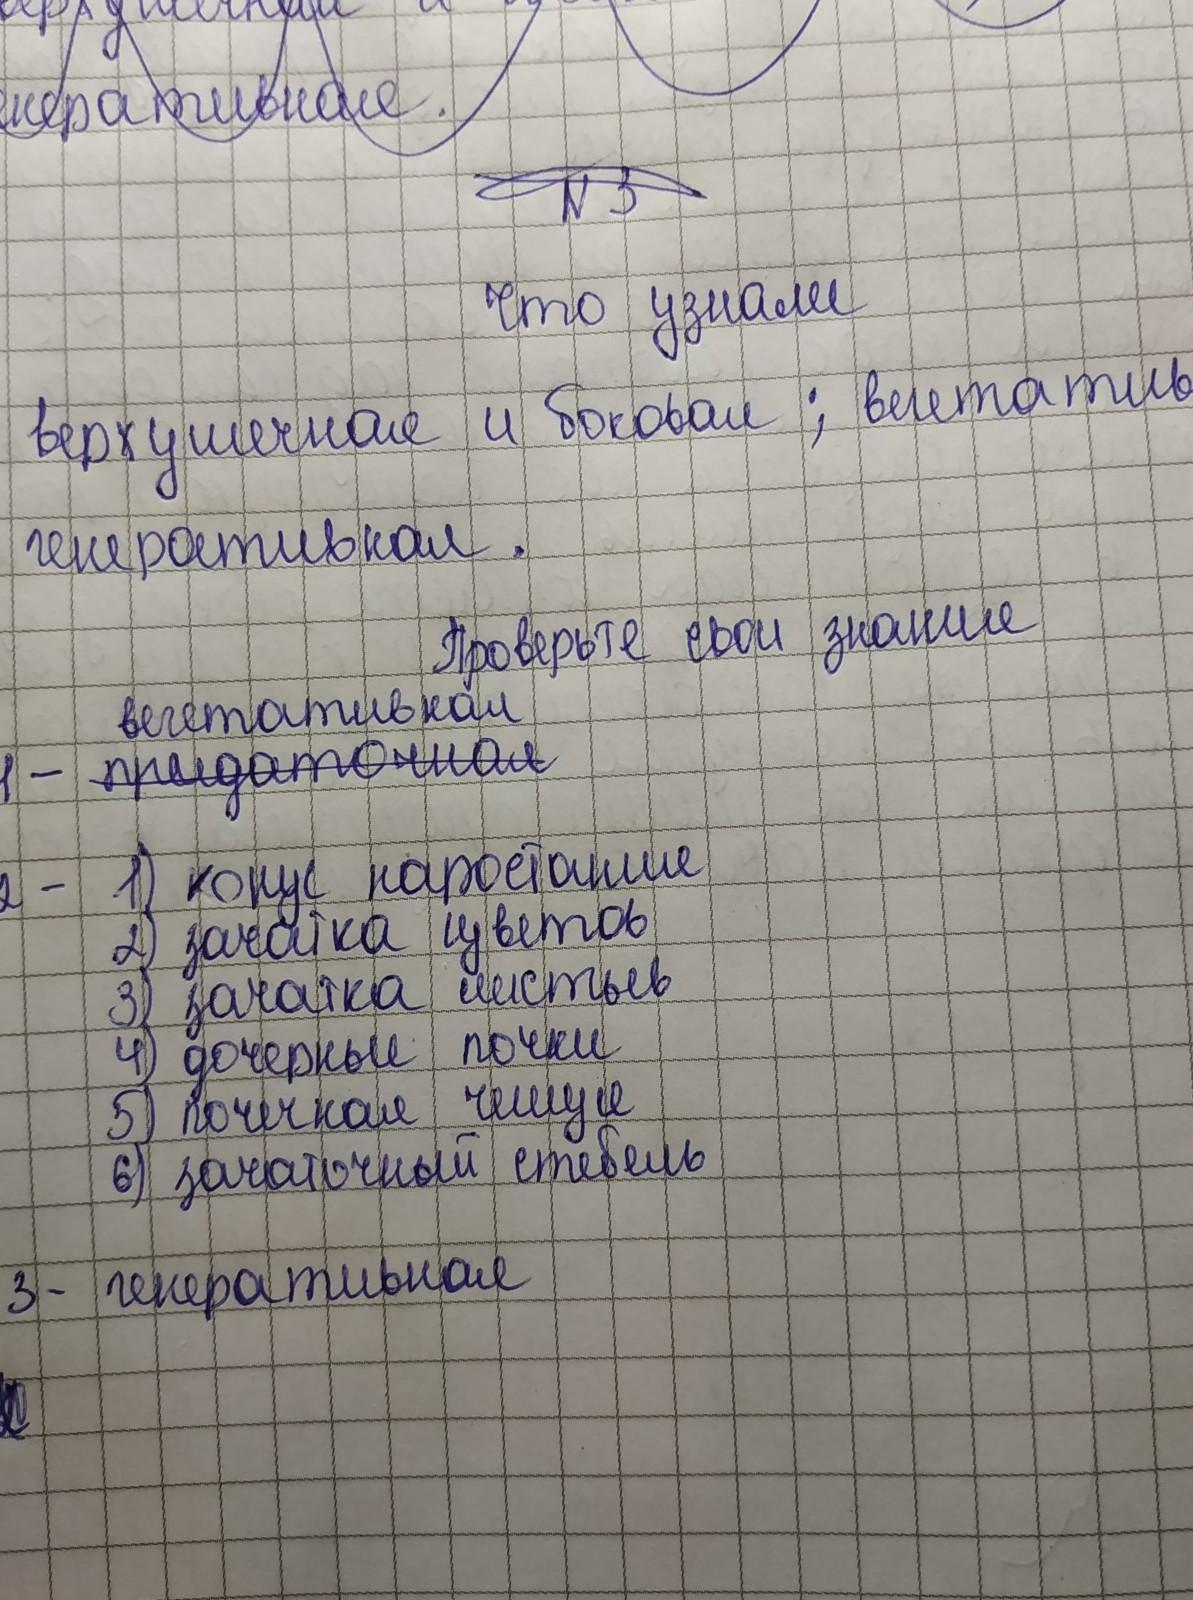 верхушечная и
генеративная.
N 3
Что узнали
верхушечная и боковая ; вегетатив
генеративная .
Проверьте свои знание
вегетативная
1 - придаточная
2 - 1) конус наростание
2) зачатка цветов
3) зачатка листьев
4) дочерные почки
5) почечная чешуя
6) зачаточный стебель
3 - генеративная